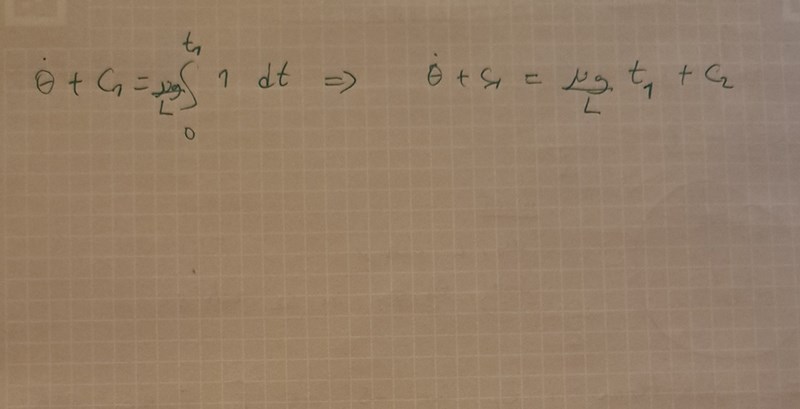 θ̇ + C₁ = μg/L ∫₀^t₁ 1 dt ⇒ θ̇ + C₁ = μg/L t₁ + C₂